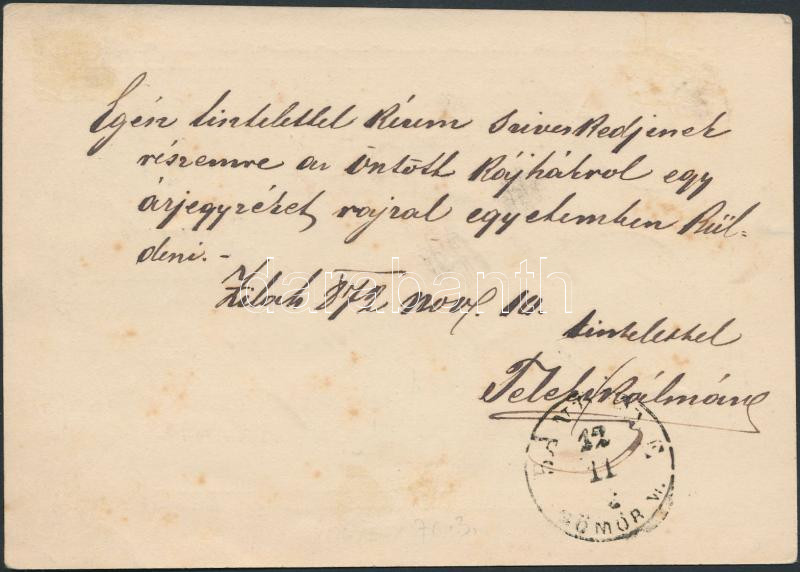 Egész tisztelettel kérem sziveskedjenek
részemre az öntött Kájhákrol egy
árjegyzéket rajzal egyetemben kül-
deni. -
Zilah 872 nov. 10.
tisztelettel
Teleki Kálmán
darabanth
12
11
GÖMÖR M.